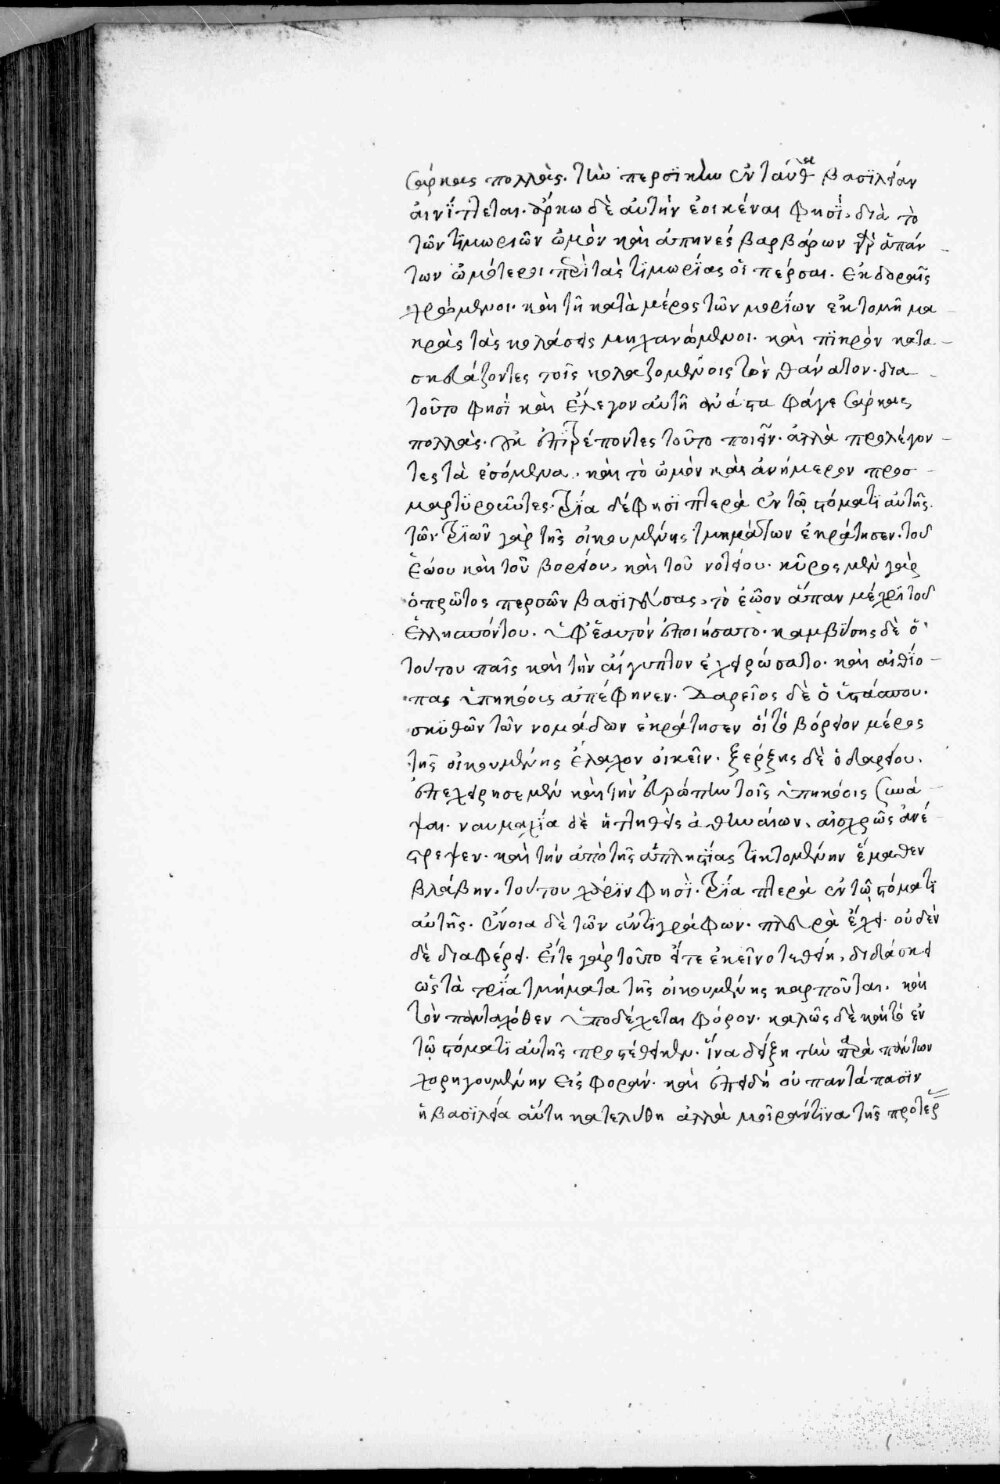 σάρκας πολλάς. τὴν περσικὴν ἐνταῦθα βασιλείαν
αἰνίττεται. ἄρκω δὲ αὐτὴν ἐοικέναι φησί, διὰ τὸ
τῶν τιμωριῶν ὠμὸν καὶ ἀπηνές βαρβάρων γὰρ ἁπάν
των ὠμότεροι περὶ τὰς τιμωρίας οἱ πέρσαι. ἐκδοραῖς
χρώμενοι. καὶ τῇ κατὰ μέρος τῶν μορίων ἐκτομῇ μα
κρὰς τὰς κολάσεις μηχανώμενοι. καὶ πικρόν κατα
σκευάζοντες τοῖς κολαζομένοις τὸν θάνατον. δια
τοῦτο φησὶ καὶ ἔλεγον αὐτῇ ἀνάστα φάγε σάρκας
πολλάς. οὐκ ἐπιτρέποντες τοῦτο ποιεῖν. ἀλλὰ προλέγον
τες τὰ ἐσόμενα. καὶ τὸ ὠμὸν καὶ ἀνήμερον προσ
μαρτυροῦντες. τρία δέ φησι πτερὰ ἐν τῷ στόματι αὐτῆς.
τῶν τριῶν γὰρ τῆς οἰκουμένης τμημάτων ἐκράτησεν. τοῦ
ἑώου καὶ τοῦ βορείου, καὶ τοῦ νοτίου. κῦρος μὲν γὰρ
ὁ πρῶτος περσῶν βασιλεύσας, τὸ ἑῶον ἅπαν μέχρι τοῦ
ἑλλησπόντου. ὑφ' ἑαυτόν ἐποιήσατο. καμβύσης δὲ ὁ
τούτου παῖς καὶ τὴν αἴγυπτον ἐχειρώσατο. καὶ αἰθίο
πας ὑπηκόους ἀπέφηνεν. Δαρεῖος δὲ ὁ ὑστάσπου.
σκυθῶν τῶν νομάδων ἐκράτησεν οἳ τὸ βόρειον μέρος
τῆς οἰκουμένης ἔλαχον οἰκεῖν. ξέρξης δὲ ὁ δαρείου.
ἐπεχείρησε μὲν καὶ τὴν εὐρώπην τοῖς ὑπηκόοις συνά
ψαι. ναυμαχία δὲ ἡττηθεὶς ἀθηναίων, αἰσχρῶς ἀνέ
στρεψεν. καὶ τὴν ἀπὸ τῆς ἀπληστίας τικτομένην ἔμαθεν
βλάβην. τούτου χάριν φησὶ. τρία πτερὰ ἐν τῷ στόματι
αὐτῆς. ἔνια δὲ τῶν ἀντιγράφων. πλευρὰ ἔχει. οὐδὲν
δὲ διαφέρει. εἴτε γὰρ τοῦτο εἴτε ἐκεῖνο τεθείη, διδάσκει
ὡς τὰ τρία τμήματα τῆς οἰκουμένης καρποῦται. καὶ
τὸν πανταχόθεν ὑποδέχεται φόρον. καλῶς δὲ καὶ τὸ ἐν
τῷ στόματι αὐτῆς προστέθεικεν. ἵνα δείξῃ τὴν παρὰ πάντων
χορηγουμένην εἰσφοράν. καὶ ἐπειδὴ οὐ παντάπασιν
ἡ βασιλεία αὕτη κατελύθη ἀλλὰ μοῖραν τινα τῆς προτέρ